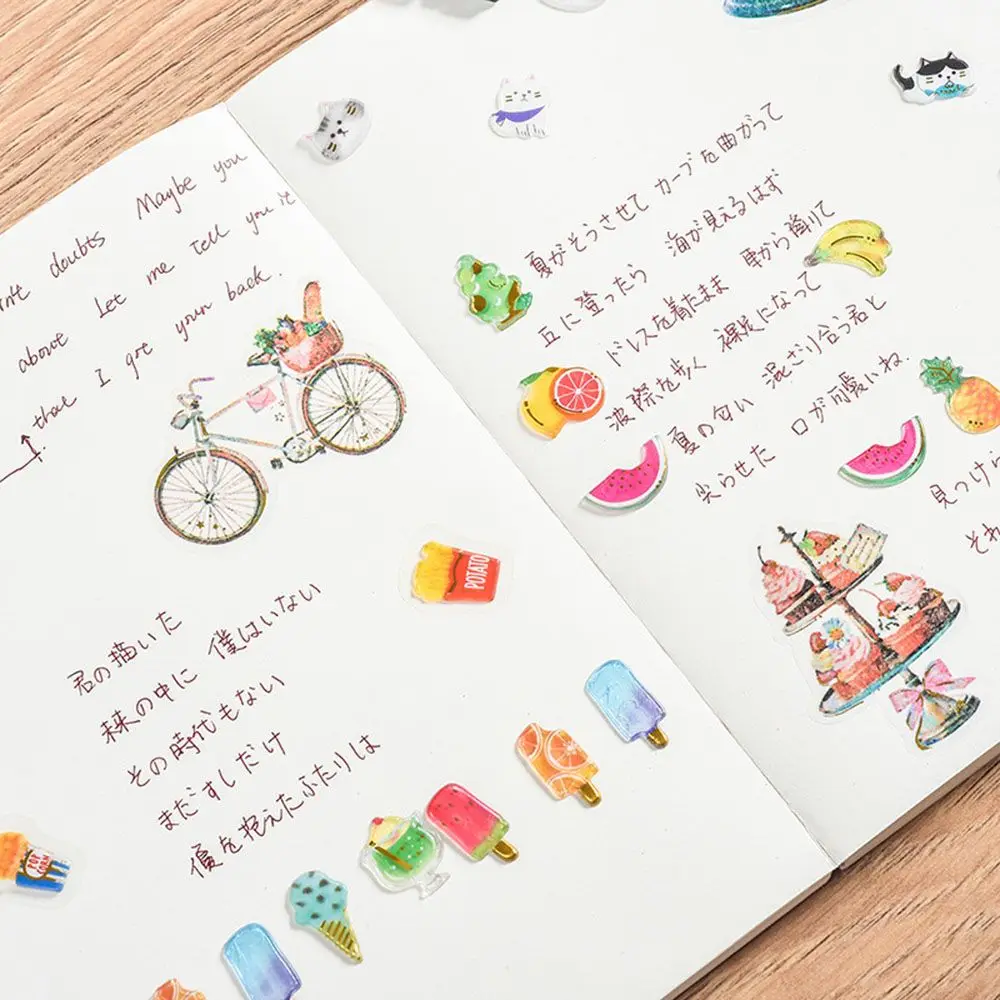 Maybe you
doubts
above Let me tell you it
that I got your back.
POTATO
君の描いた
未来の中に 僕はいない
その時代もない
まだすしだけ
傷を抱えたふたりは
POP CORN
夏がそうさせて カーブを曲がって
丘に登ったら 海が見えるはず
ドレスを着たまま 車から降りて
波際を歩く 裸足になって
夏の匂い 混ざり合う君と
尖らせた 口が可愛いね.
見つけら
それ